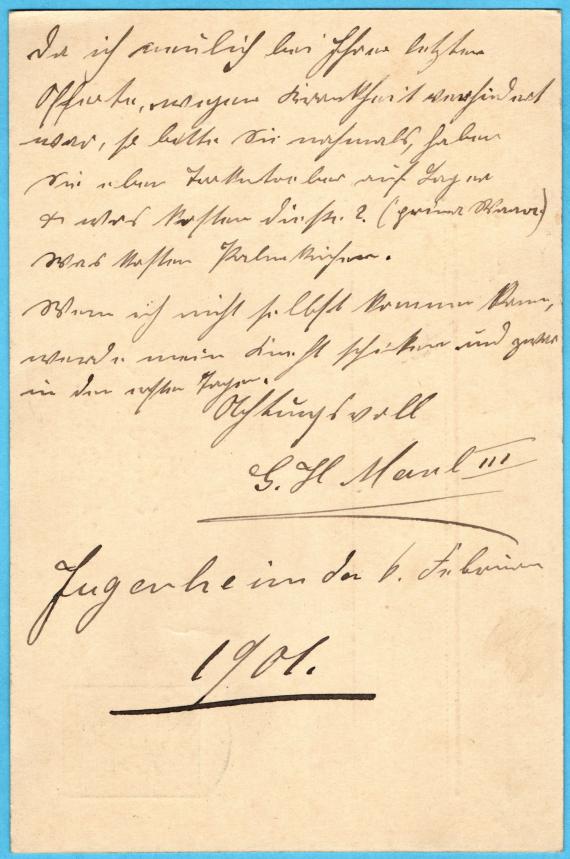 Da ich neulich bei Ihrer letzten
Offerte, wegen Krankheit verhindert
war, so bitte Sie nochmals, haben
Sie eben auf Lager
& was kosten diese? (prima Waare)
Was kosten Palmkuchen.
Wenn ich nicht selbst kommen kann,
werde mein Knecht schicken und zwar
in den ersten Tagen.
Achtungsvoll
G. H III
Jugenheim den 6. Februar
1901.